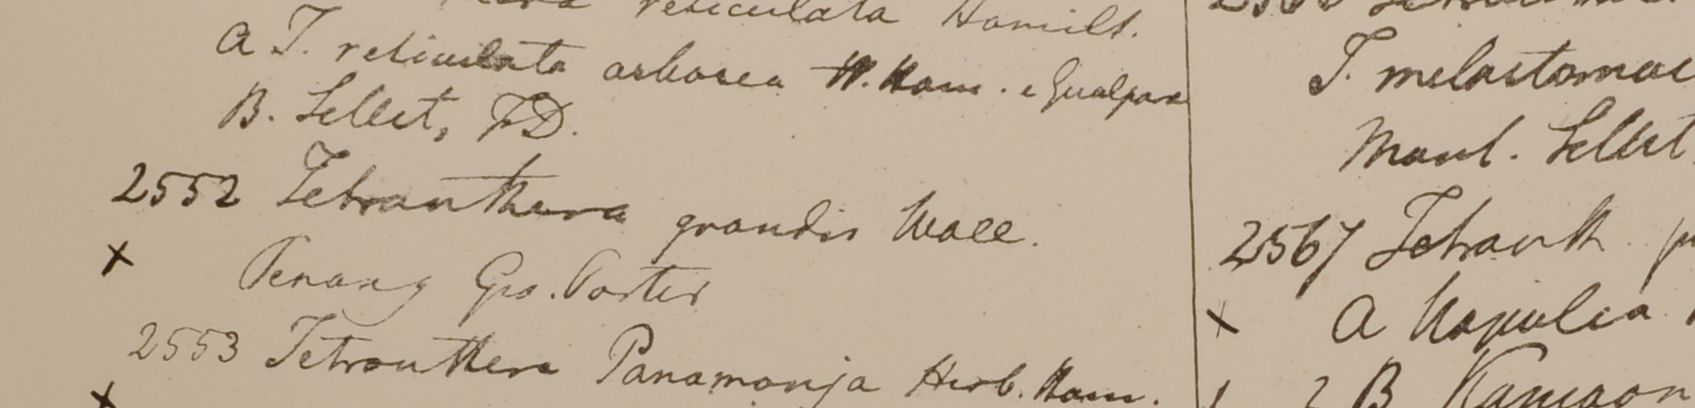 reticulata Hamilt.
A T. reticulata arborea H. Ham. e Gualpara
B. Sillet, F.D.
2552 Tetranthera grandis Wall.
x Penang Geo. Porter
2553 Tetranthera Panamonja Herb. Ham.
x
T. melastomac
Mont. Sillet
2567 Tetranth
x A Napulia
B Kamaon